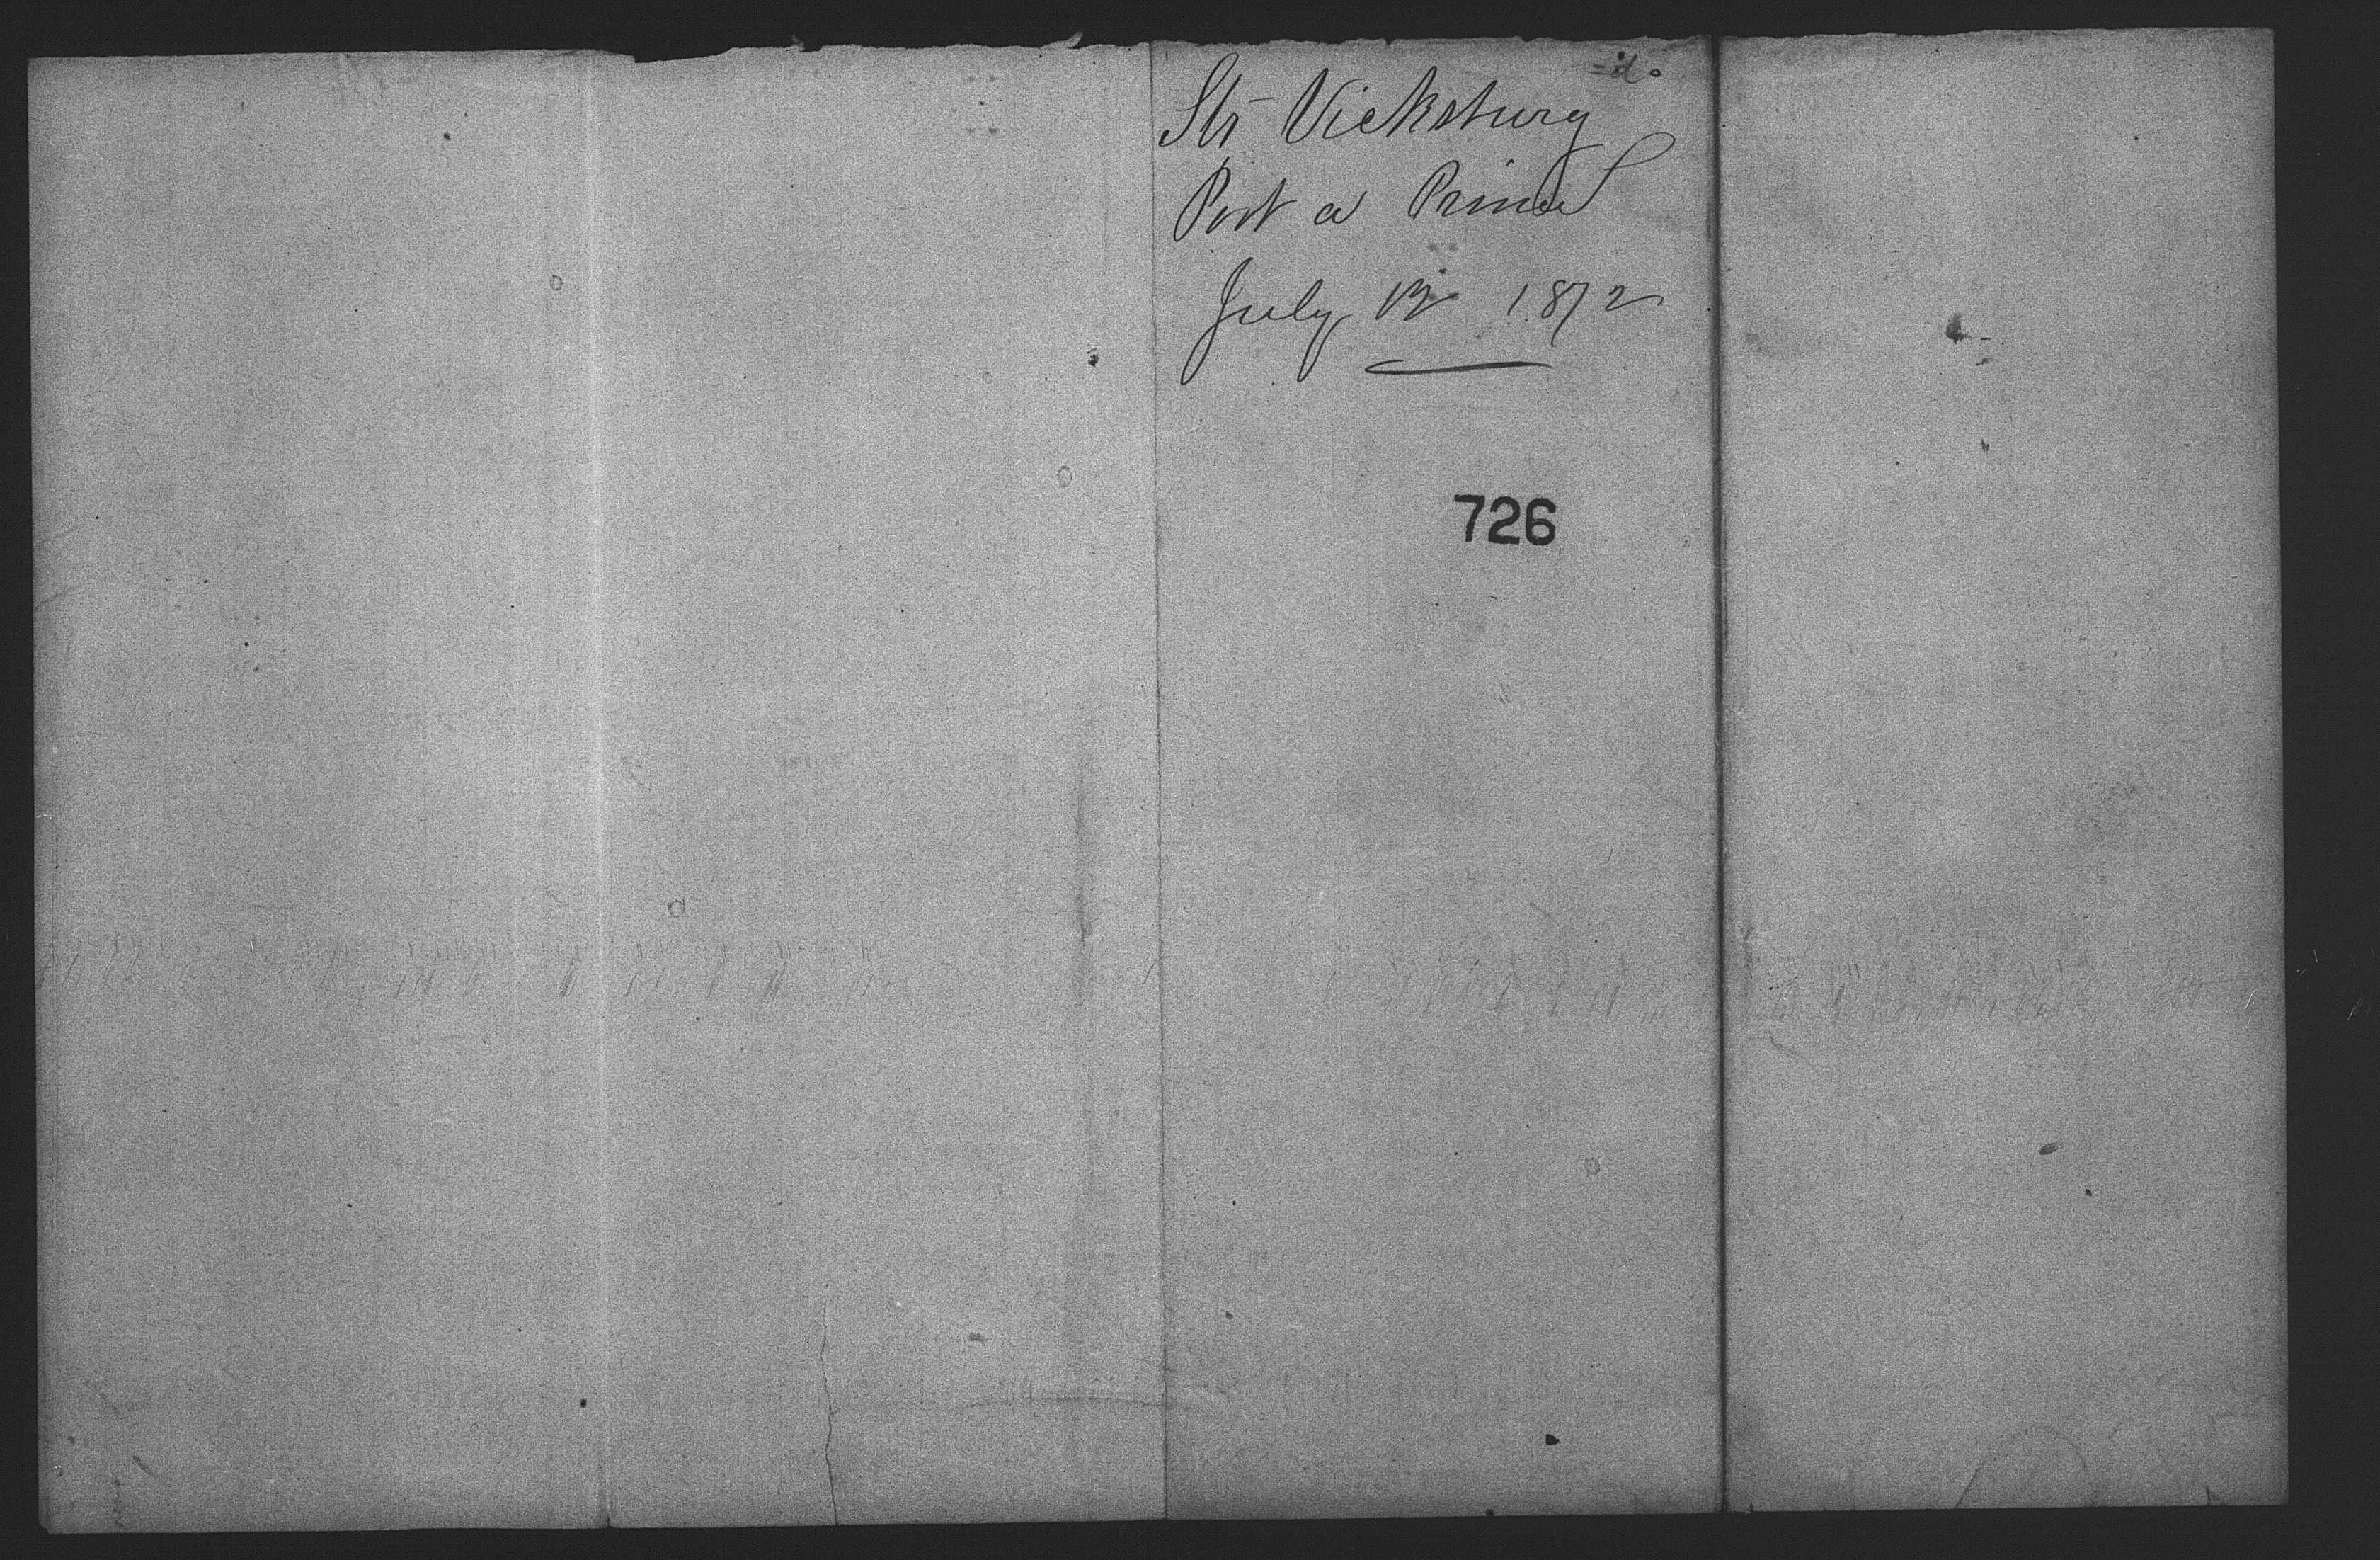 Str Vicksburg
Port a Prince
July 12 1872
726